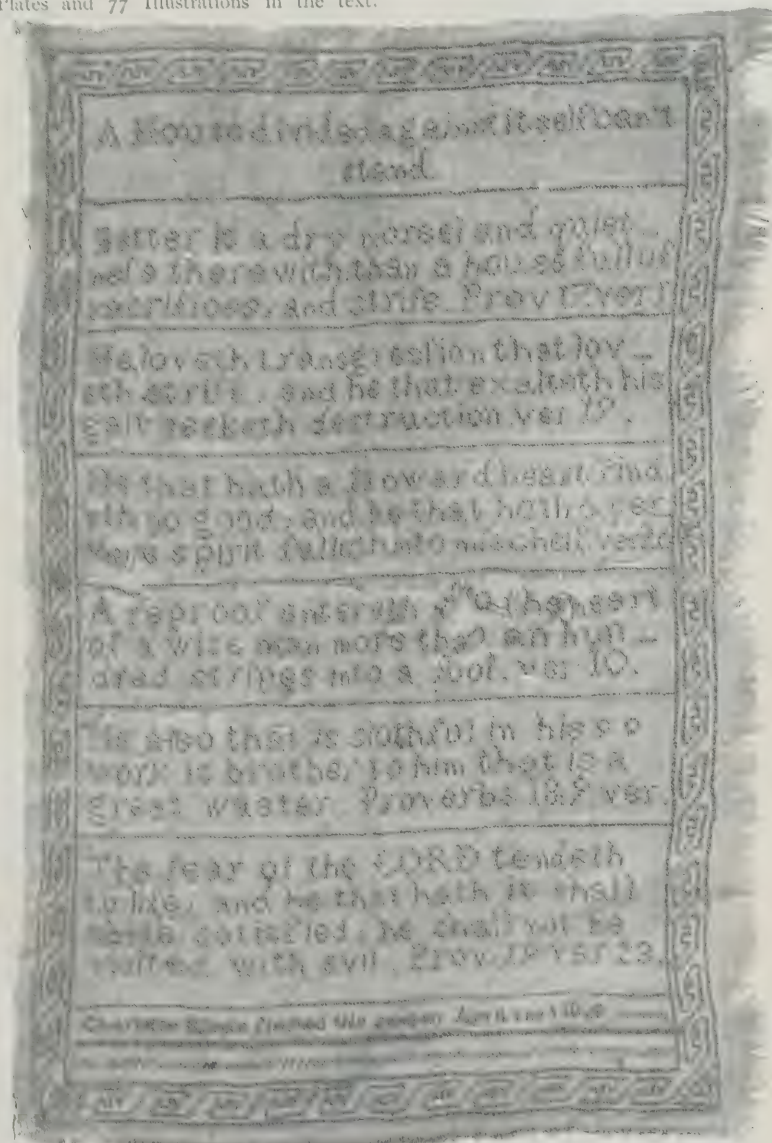 Plates and 77 Illustrations in the text.
A House divided against itself can't
stand.
Better is a dry morsel and quiet_
nefs therewith than a house full of
sacrifices, and strife. Prov 17 ver 1
He loveth transgression that lov_
eth strife, and he that exalteth his
gate seeketh destruction ver 19.
He that hath a froward heart find
eth no good, and he that hath a per
verse spirit falleth into mischeif ver
A reproof entereth the heart
of a wise man more than an hun_
dred stripes into a fool. ver 10.
He also that is slothful in his
work is brother to him that is a
great waster. Proverbs 18.9 ver.
The fear of the LORD tendeth
to life, and he that hath it shall
abide satisfied, he shall not be
visited with evil. Prov. 19 ver 23.
finished this sampler April